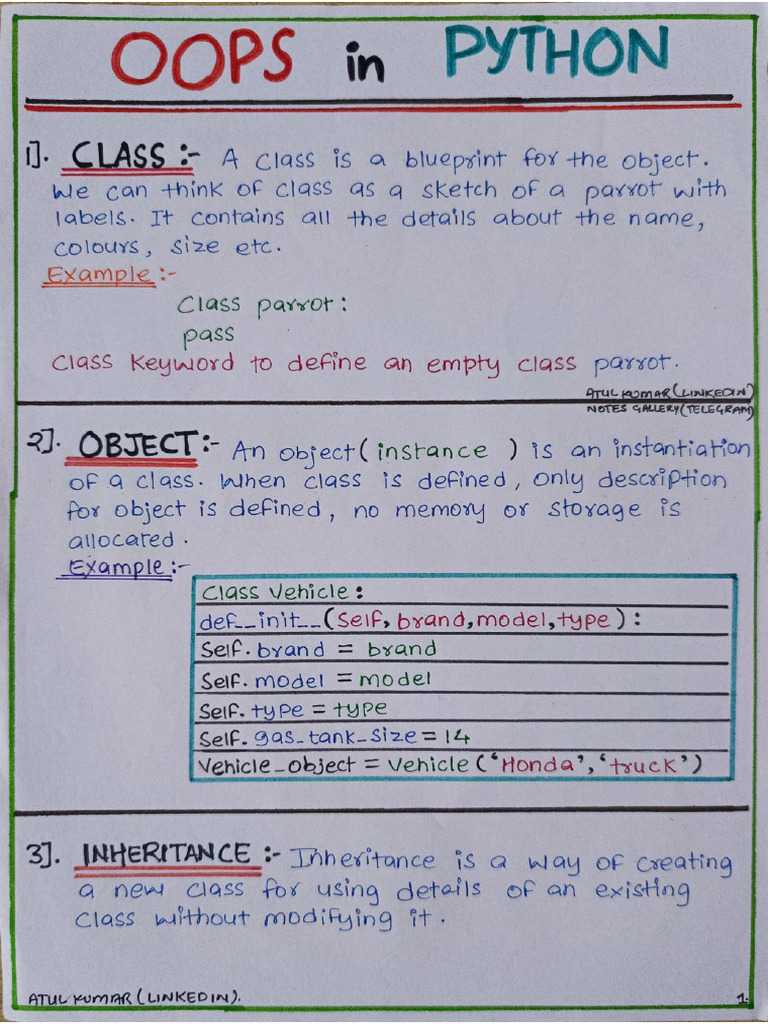 OOPS in PYTHON
1]. CLASS :- A class is a blueprint for the object.
We can think of class as a sketch of a parrot with
labels. It contains all the details about the name,
colours, size etc.
Example :-
Class parrot :
pass
Class Keyword to define an empty class parrot.
ATUL KUMAR (LINKEDIN)
NOTES GALLERY (TELEGRAM)
2]. OBJECT :- An object ( instance ) is an instantiation
of a class. When class is defined, only description
for object is defined, no memory or storage is
allocated.
Example :-
Class Vehicle :
def__init__(Self, brand, model, type ) :
Self. brand = brand
Self. model = model
Self. type = type
Self. gas_tank_size = 14
Vehicle_object = Vehicle ('Honda', 'truck')
3]. INHERITANCE :- Inheritance is a way of creating
a new class for using details of an existing
class without modifying it.
ATUL KUMAR (LINKEDIN).
1.